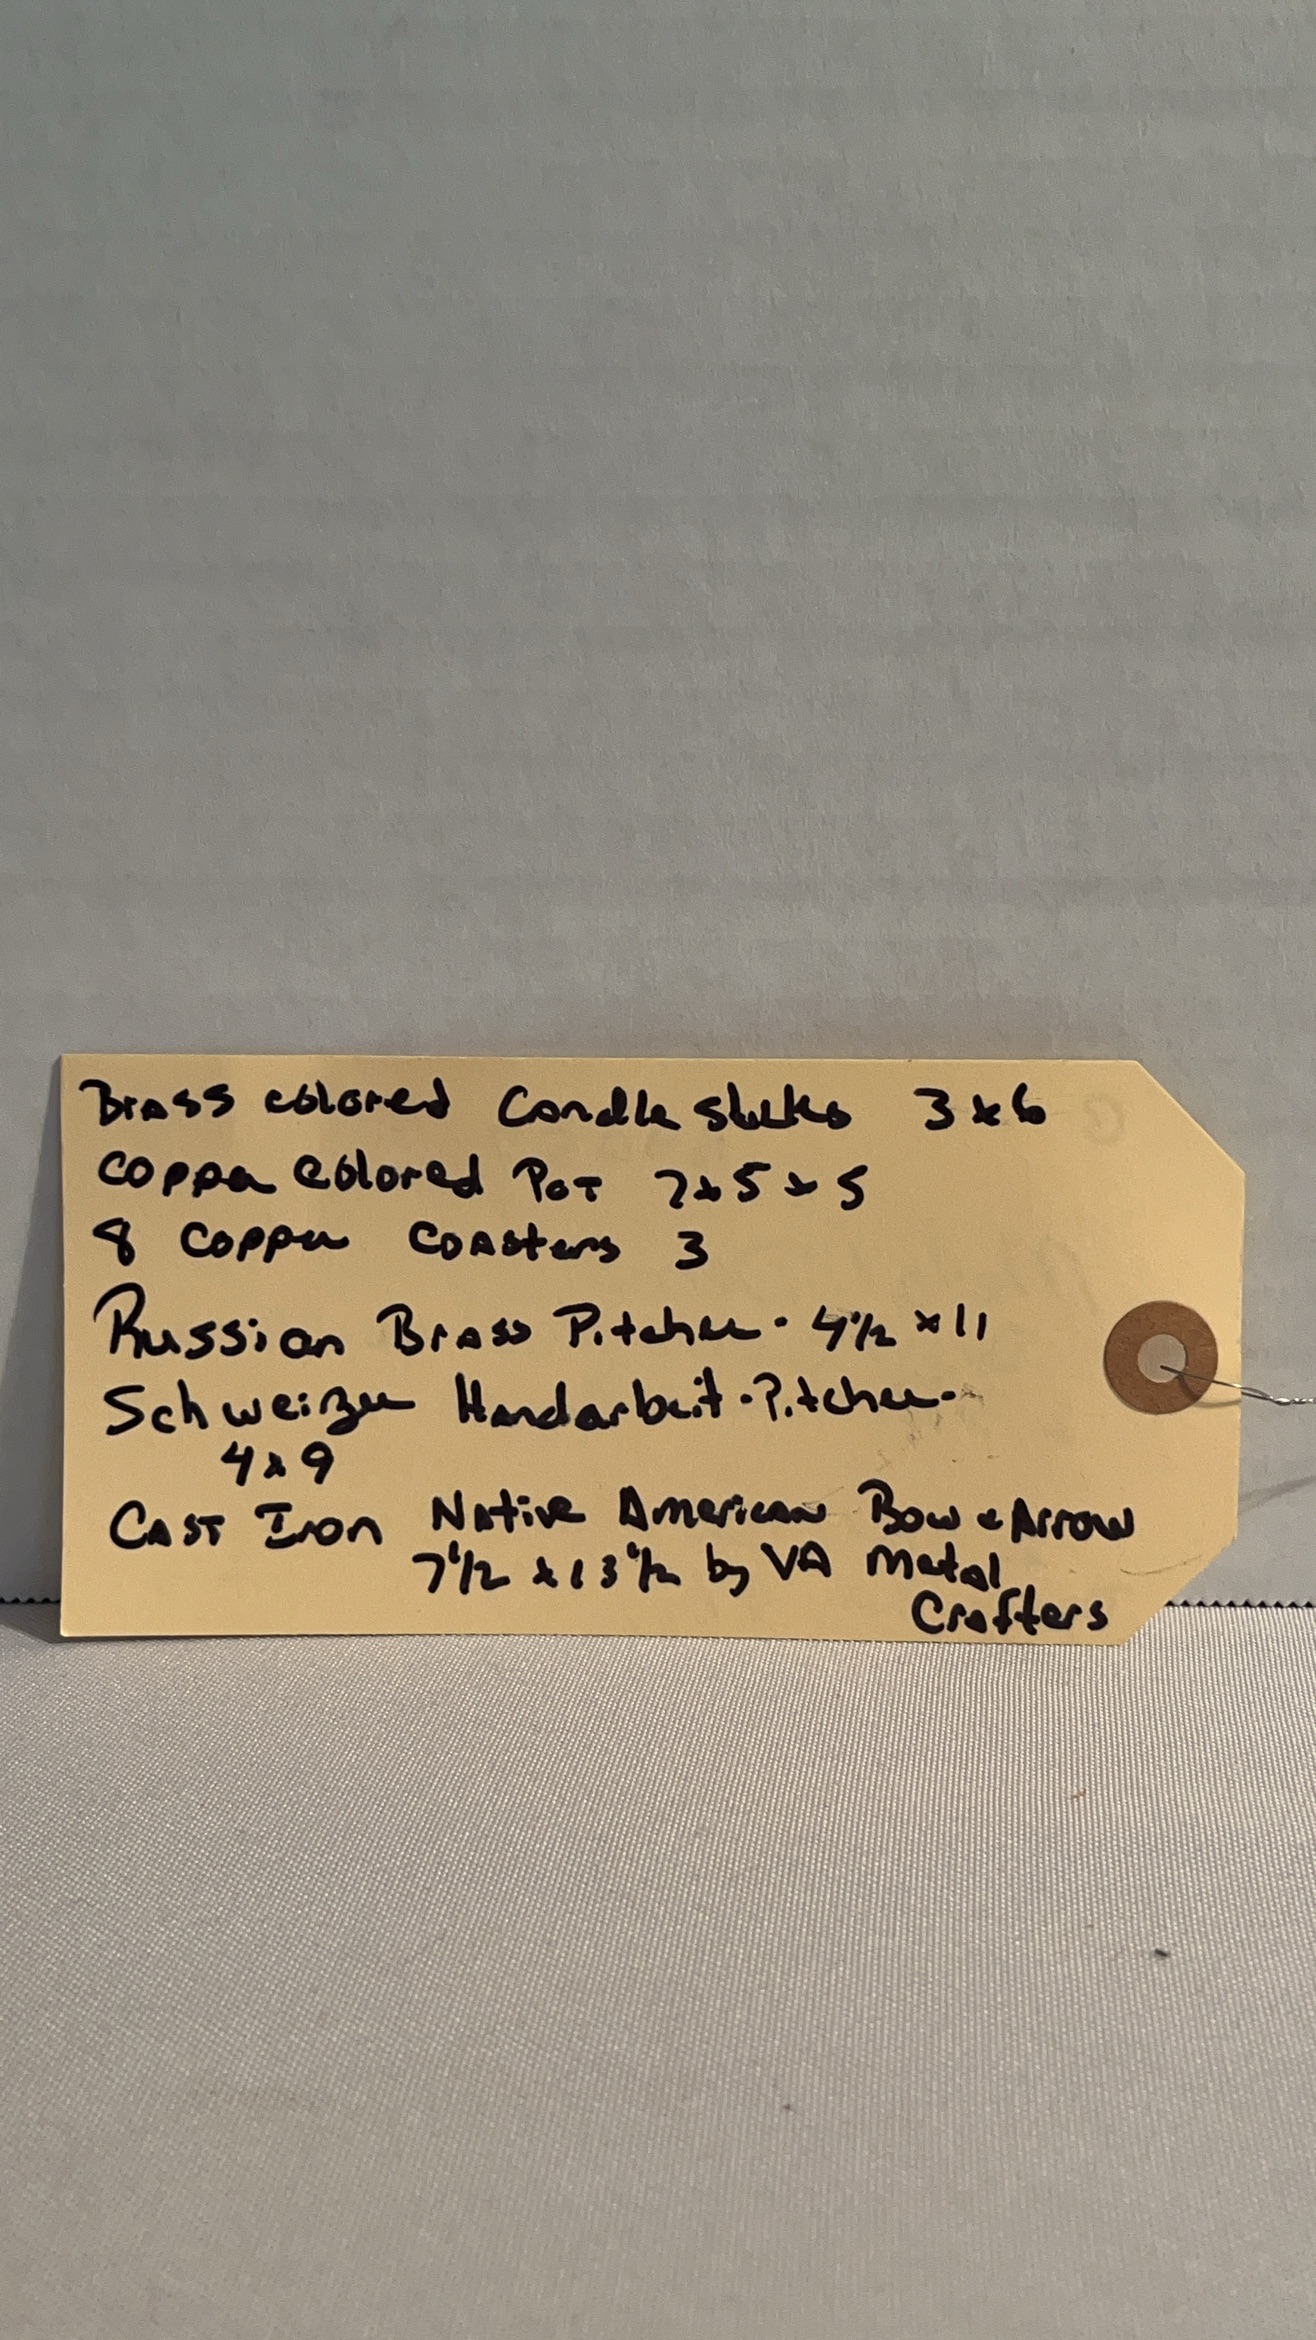 Brass colored Candle sticks 3x6
Copper colored Pot 7x5x5
8 Copper Coasters 3
Russian Brass Pitcher - 4 1/2 x 11
Schweizer Handarbeit - Pitcher -
4x9
Cast Iron Native American Bow & Arrow
7 1/2 x 13 1/2 by VA Metal
Crafters